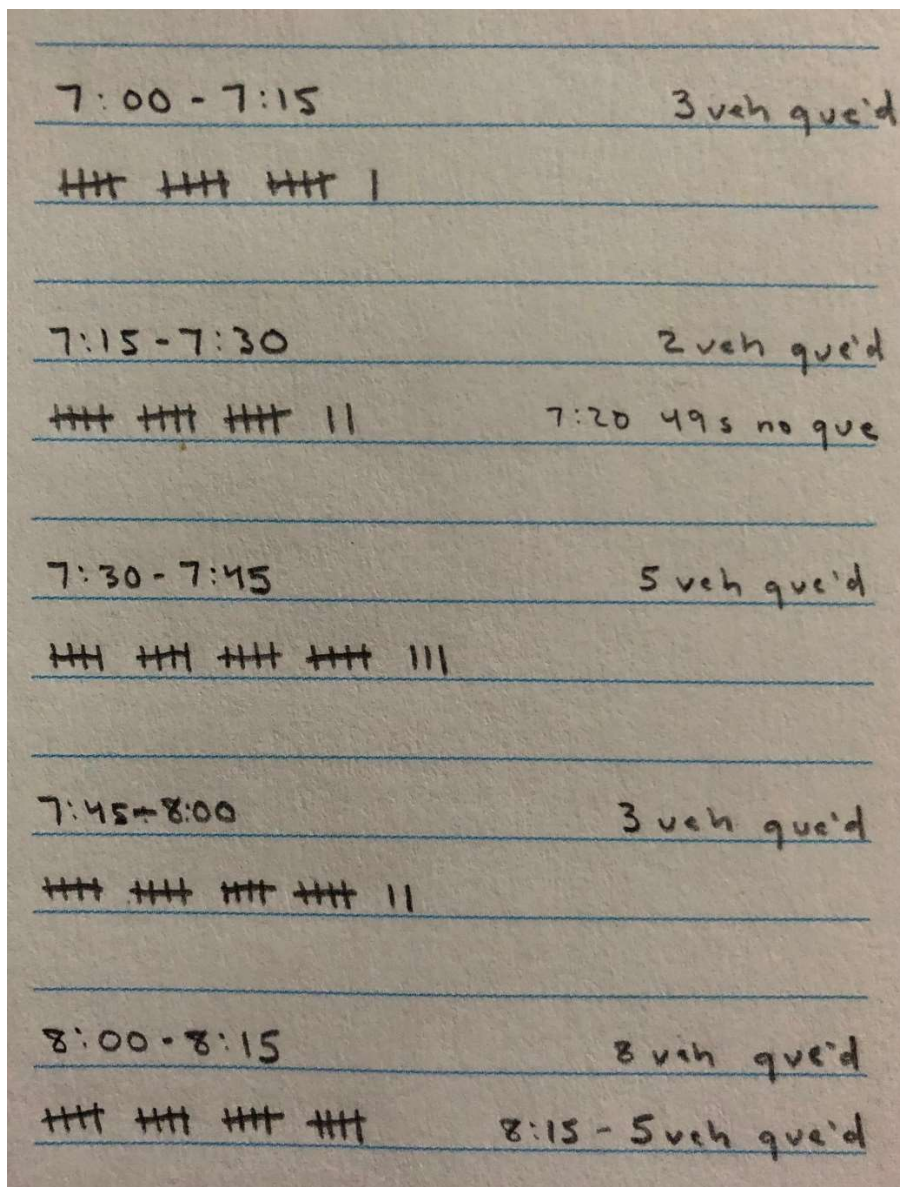 7:00 - 7:15 3 veh que'd
卌 卌 卌 |
7:15 - 7:30 2 veh que'd
卌 卌 卌 || 7:20 49s no que
7:30 - 7:45 5 veh que'd
卌 卌 卌 卌 |||
7:45 - 8:00 3 veh que'd
卌 卌 卌 卌 ||
8:00 - 8:15 8 veh que'd
卌 卌 卌 卌 8:15 - 5 veh que'd